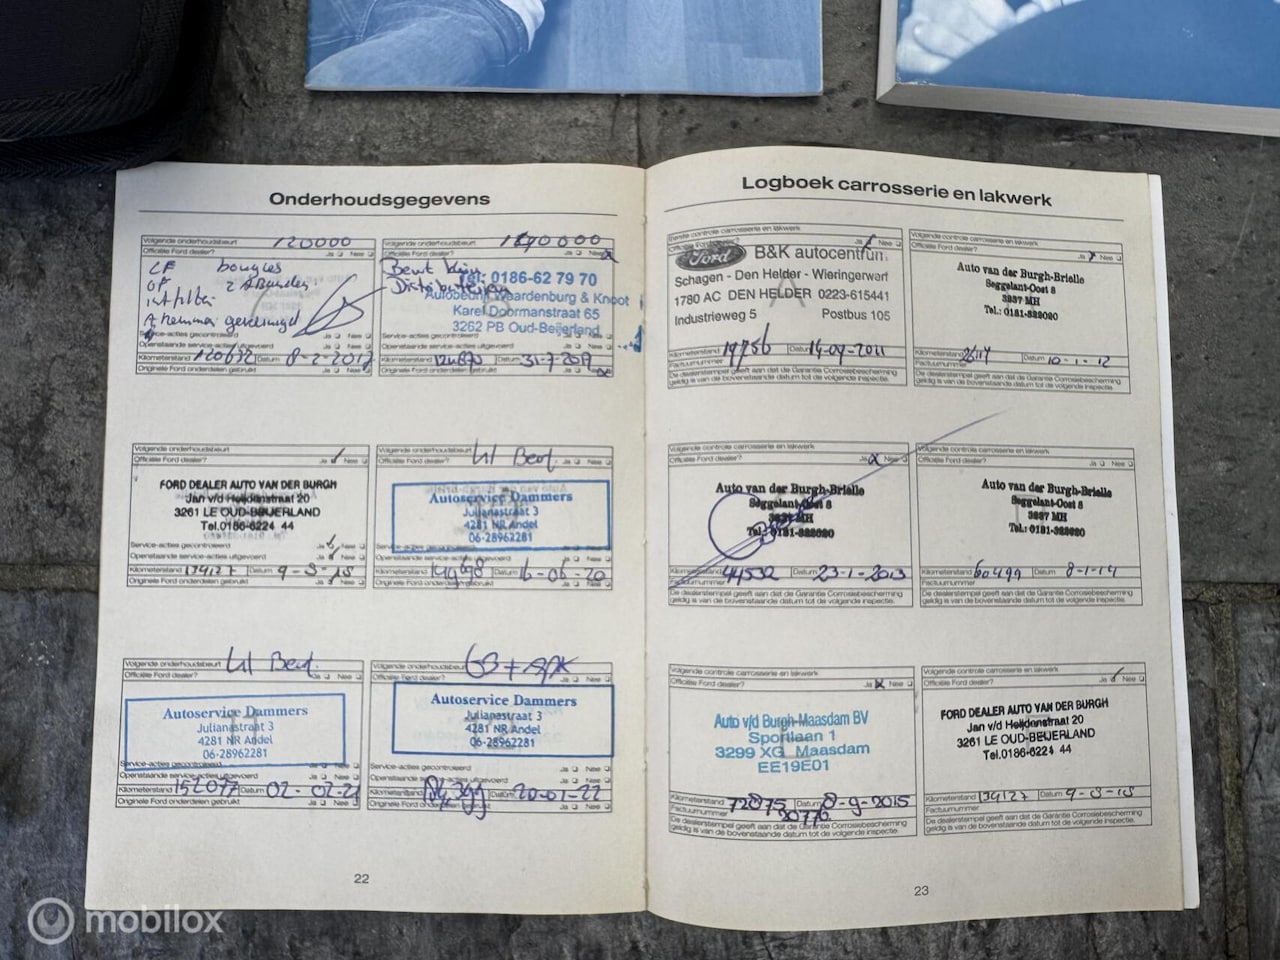 Onderhoudsgegevens
Volgende onderhoudsbeurt 120000
Officiële Ford dealer? Ja Nee
bougies
Service-acties gecontroleerd Ja Nee
Openstaande service-acties uitgevoerd Ja Nee
Kilometerstand 120632 Datum 8-2-2017
Originele Ford onderdelen gebruikt Ja Nee
Volgende onderhoudsbeurt
Officiële Ford dealer? Ja Nee
Beurt klein
Tel: 0186-62 79 70
Autobedrijf Waardenburg & Knoot
Karel Doormanstraat 65
3262 PB Oud-Beijerland
Kilometerstand Datum 31-7-2017
Originele Ford onderdelen gebruikt Ja Nee
Volgende onderhoudsbeurt
Officiële Ford dealer? Ja Nee
FORD DEALER AUTO VAN DER BURGH
Jan v/d Heijdenstraat 20
3261 LE OUD-BEIJERLAND
Tel.0186-6224 44
Service-acties gecontroleerd Ja Nee
Openstaande service-acties uitgevoerd Ja Nee
Kilometerstand 134127 Datum 9-3-18
Originele Ford onderdelen gebruikt Ja Nee
Volgende onderhoudsbeurt
Officiële Ford dealer? Ja Nee
Autoservice Dammers
Julianastraat 3
4281 NR Andel
06-28962281
Openstaande service-acties uitgevoerd Ja Nee
Kilometerstand Datum 16-06-20
Originele Ford onderdelen gebruikt Ja Nee
Volgende onderhoudsbeurt
Officiële Ford dealer? Ja Nee
Autoservice Dammers
Julianastraat 3
4281 NR Andel
06-28962281
Service-acties gecontroleerd Ja Nee
Openstaande service-acties uitgevoerd Ja Nee
Kilometerstand 152077 Datum 02-02-21
Originele Ford onderdelen gebruikt Ja Nee
Volgende onderhoudsbeurt GB + APK
Officiële Ford dealer? Ja Nee
Autoservice Dammers
Julianastraat 3
4281 NR Andel
06-28962281
Service-acties gecontroleerd Ja Nee
Openstaande service-acties uitgevoerd Ja Nee
Kilometerstand Datum 20-01-22
Originele Ford onderdelen gebruikt Ja Nee
22
Logboek carrosserie en lakwerk
Eerste controle carrosserie en lakwerk
Ja Nee
Ford B&K autocentrum
Schagen - Den Helder - Wieringerwerf
1780 AC DEN HELDER 0223-615441
Industrieweg 5 Postbus 105
Kilometerstand 19756 Datum 14-09-2011
Factuurnummer
De dealerstempel geeft aan dat de Garantie Corrosiebescherming
geldig is van de bovenstaande datum tot de volgende inspectie.
Volgende controle carrosserie en lakwerk
Officiële Ford dealer? Ja Nee
Auto van der Burgh-Brielle
Seggelant-Oost 8
3237 MH
Tel.: 0181-322020
Kilometerstand Datum 10-1-12
Factuurnummer
De dealerstempel geeft aan dat de Garantie Corrosiebescherming
geldig is van de bovenstaande datum tot de volgende inspectie.
Volgende controle carrosserie en lakwerk
Officiële Ford dealer? Ja Nee
Auto van der Burgh-Brielle
Seggelant-Oost 8
3237 MH
Tel.: 0181-322020
Kilometerstand 44532 Datum 23-1-2013
Factuurnummer
De dealerstempel geeft aan dat de Garantie Corrosiebescherming
geldig is van de bovenstaande datum tot de volgende inspectie.
Volgende controle carrosserie en lakwerk
Officiële Ford dealer? Ja Nee
Auto van der Burgh-Brielle
Seggelant-Oost 8
3237 MH
Tel.: 0181-322020
Kilometerstand 60499 Datum 8-1-14
Factuurnummer
De dealerstempel geeft aan dat de Garantie Corrosiebescherming
geldig is van de bovenstaande datum tot de volgende inspectie.
Volgende controle carrosserie en lakwerk
Officiële Ford dealer? Ja Nee
Auto v/d Burgh-Maasdam BV
Sportlaan 1
3299 XG Maasdam
EE19E01
Kilometerstand 72875 Datum 8-9-2015
Factuurnummer 20776
De dealerstempel geeft aan dat de Garantie Corrosiebescherming
geldig is van de bovenstaande datum tot de volgende inspectie.
Volgende controle carrosserie en lakwerk
Officiële Ford dealer? Ja Nee
FORD DEALER AUTO VAN DER BURGH
Jan v/d Heijdenstraat 20
3261 LE OUD-BEIJERLAND
Tel.0186-6224 44
Kilometerstand 134127 Datum 9-3-18
Factuurnummer
De dealerstempel geeft aan dat de Garantie Corrosiebescherming
geldig is van de bovenstaande datum tot de volgende inspectie.
23
mobilox